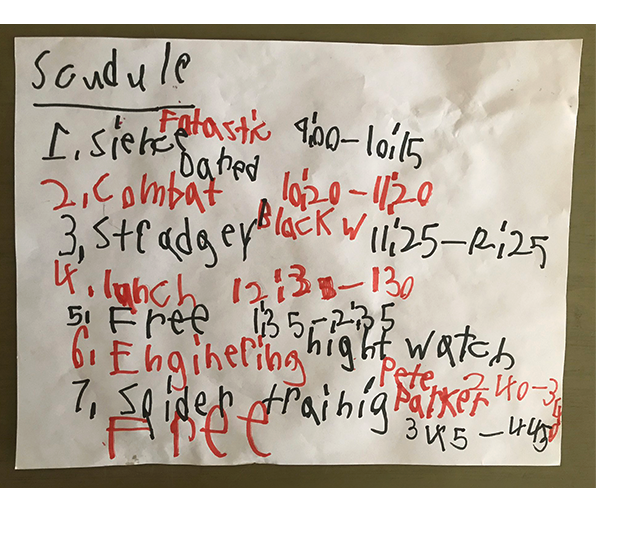 Scudule
1. Sience Fatastic 9:00-10:15
Dared
2. Combat 10:20-11:20
3, Stradgey Black W 11:25-12:25
4. lunch 12:30-130
5. Free 1:35-2:35
6. Enginering night watch
7, Spider trainig Pete Parker 240-3
Free 345-445